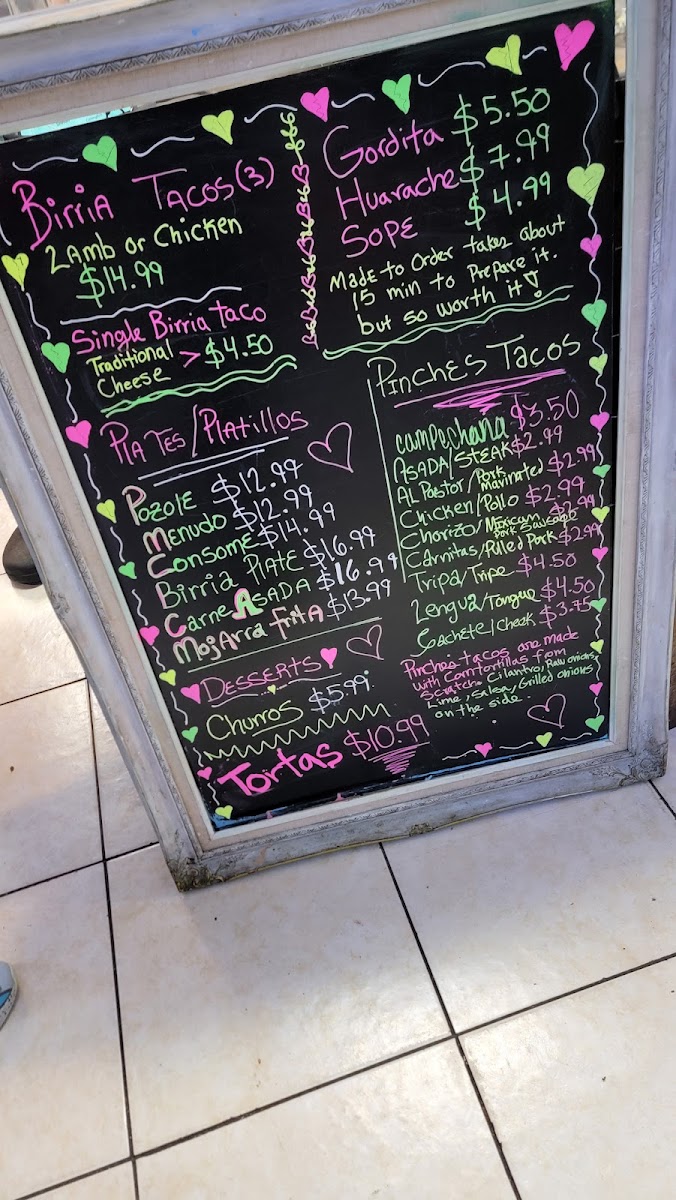 Birria Tacos(3)
Lamb or Chicken
$14.99
Single Birria taco
Traditional
Cheese > $4.50
Plates/Platillos
Pozole $12.99
Menudo $12.99
Consome $14.99
Birria Plate $16.99
Carne Asada $16.99
Mojarra frita $13.99
Desserts
Churros $5.99
Tortas $10.99
Gordita $5.50
Huarache $7.99
Sope $4.99
Made to Order takes about
15 min to Prepare it.
but so worth it!
Pinches Tacos
campechana $3.50
Asada/Steak $2.99
Al Pastor/Pork Marinated $2.99
Chicken/Pollo $2.99
Chorizo/Mexican Pork Sausage $2.99
Carnitas/Pulled Pork $2.99
Tripa/Tripe $4.50
Lengua/Tongue $4.50
Cachete/Cheek $3.75
Pinches tacos are made
with Corn Tortillas from
Scratch. Cilantro, Raw onions,
Lime, Salsa, Grilled onions
on the side.